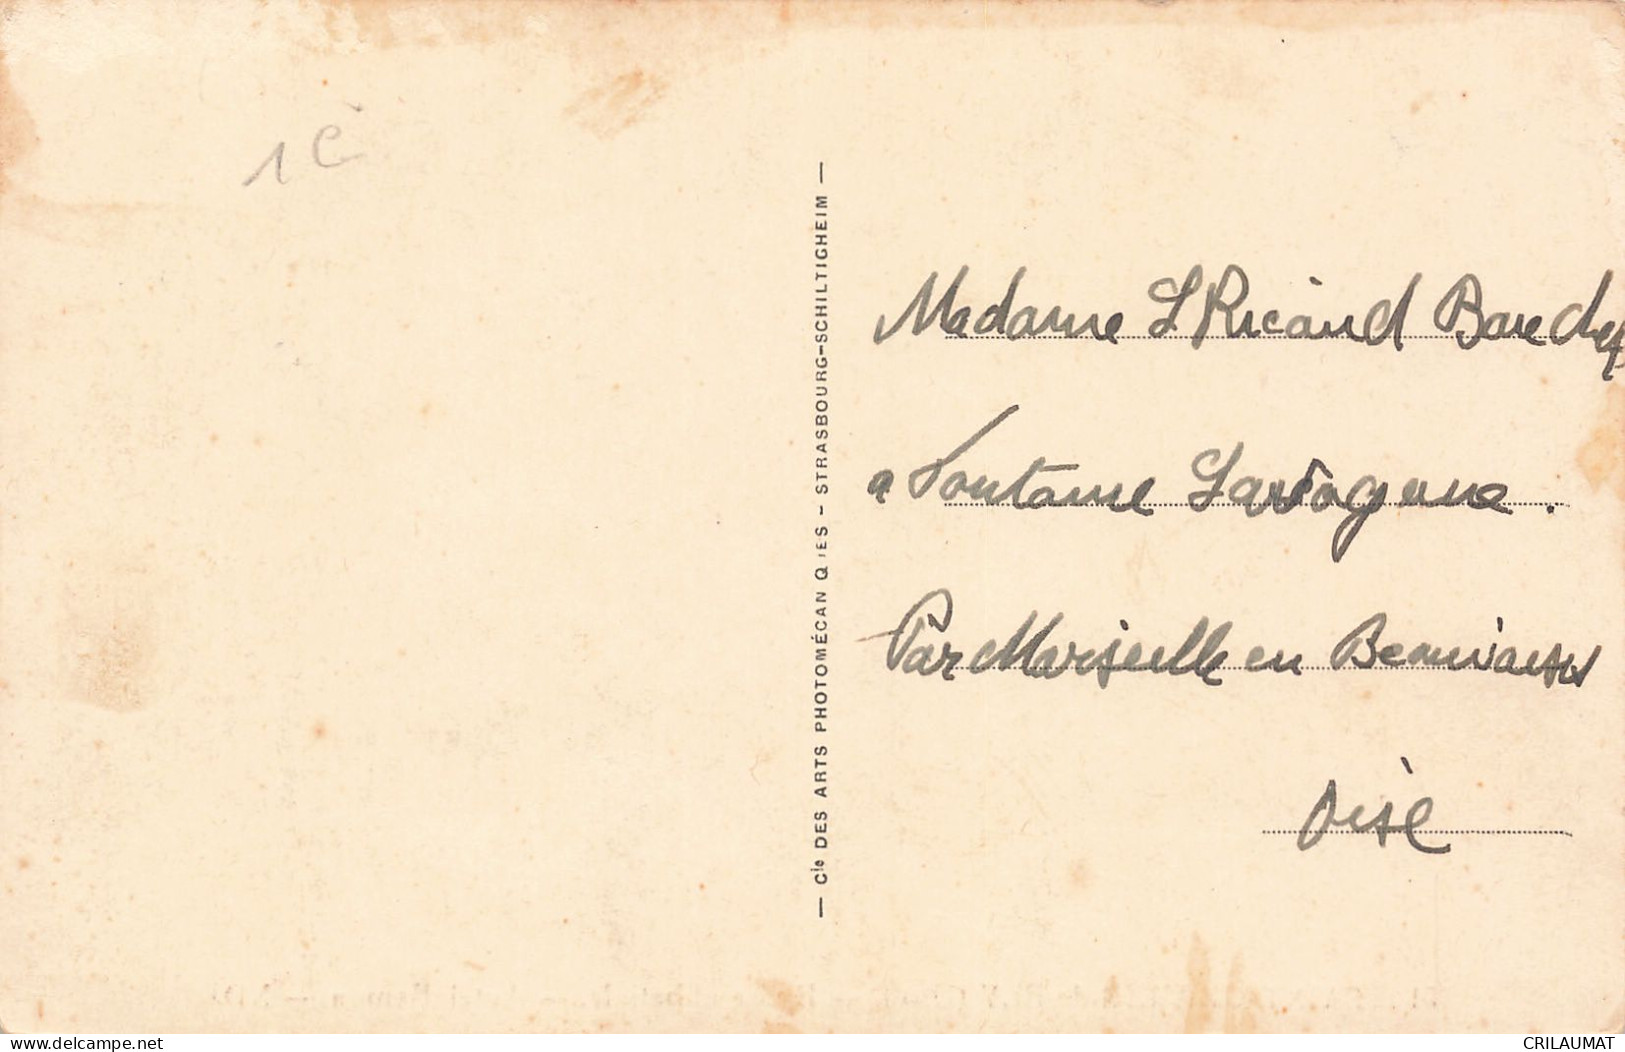 1 €
— Cie DES ARTS PHOTOMÉCAN Q ES - STRASBOURG-SCHILTIGHEIM —
Madame L Ricard
a Fontaine Lavagane.
Par Marseille en Beauvaisis
Oise
www.delcampe.net
CRILAUMAT